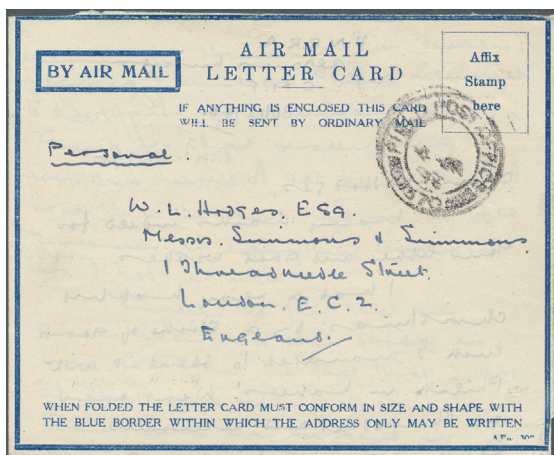 AIR MAIL
LETTER CARD
BY AIR MAIL
Affix
Stamp
here
IF ANYTHING IS ENCLOSED THIS CARD
WILL BE SENT BY ORDINARY MAIL
POST OFFICE
Personal.
W. L. Hodges, Esq.
Messrs. Simmons & Simmons.
1 Threadneedle Street.
London. E.C.2.
England.
WHEN FOLDED THE LETTER CARD MUST CONFORM IN SIZE AND SHAPE WITH
THE BLUE BORDER WITHIN WHICH THE ADDRESS ONLY MAY BE WRITTEN